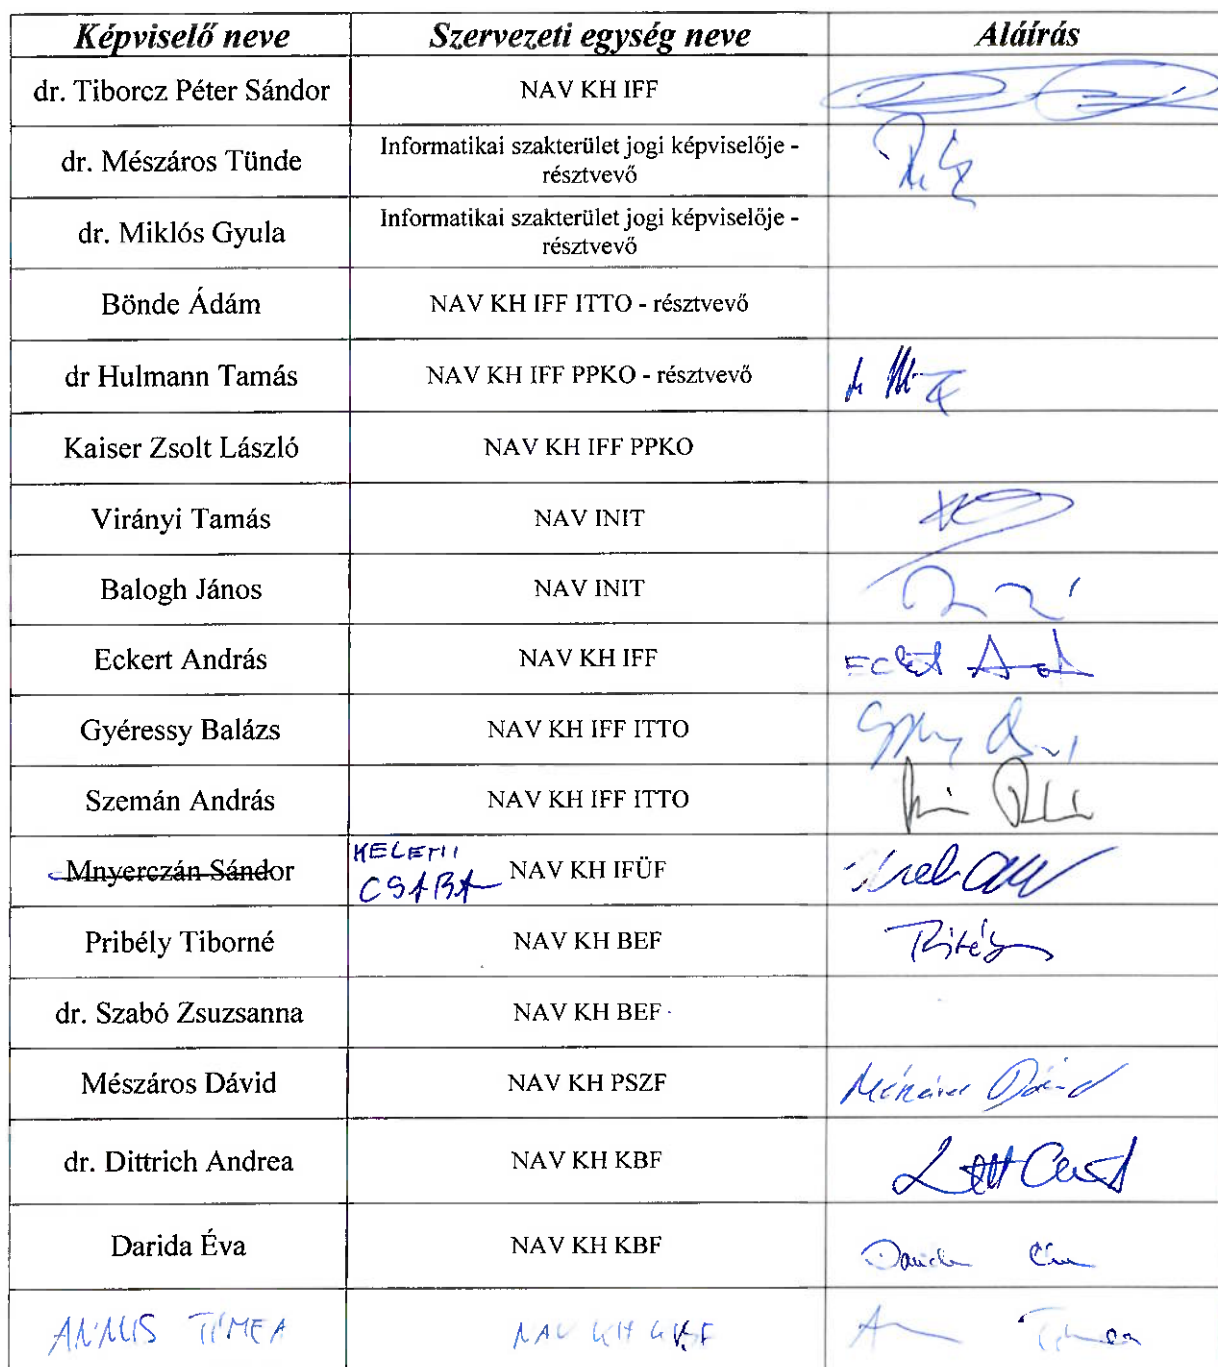 Képviselő neve Szervezeti egység neve Aláírás
dr. Tiborcz Péter Sándor NAV KH IFF
dr. Mészáros Tünde Informatikai szakterület jogi képviselője -
résztvevő
dr. Miklós Gyula Informatikai szakterület jogi képviselője -
résztvevő
Bönde Ádám NAV KH IFF ITTO - résztvevő
dr Hulmann Tamás NAV KH IFF PPKO - résztvevő
Kaiser Zsolt László NAV KH IFF PPKO
Virányi Tamás NAV INIT
Balogh János NAV INIT
Eckert András NAV KH IFF
Gyéressy Balázs NAV KH IFF ITTO
Szemán András NAV KH IFF ITTO
Mnyerczán Sándor CSABA NAV KH IFÜF
Pribély Tiborné NAV KH BEF
dr. Szabó Zsuzsanna NAV KH BEF
Mészáros Dávid NAV KH PSZF Mészáros Dávid
dr. Dittrich Andrea NAV KH KBF
Darida Éva NAV KH KBF Darida Éva
TÍMEA NAV KH Tímea